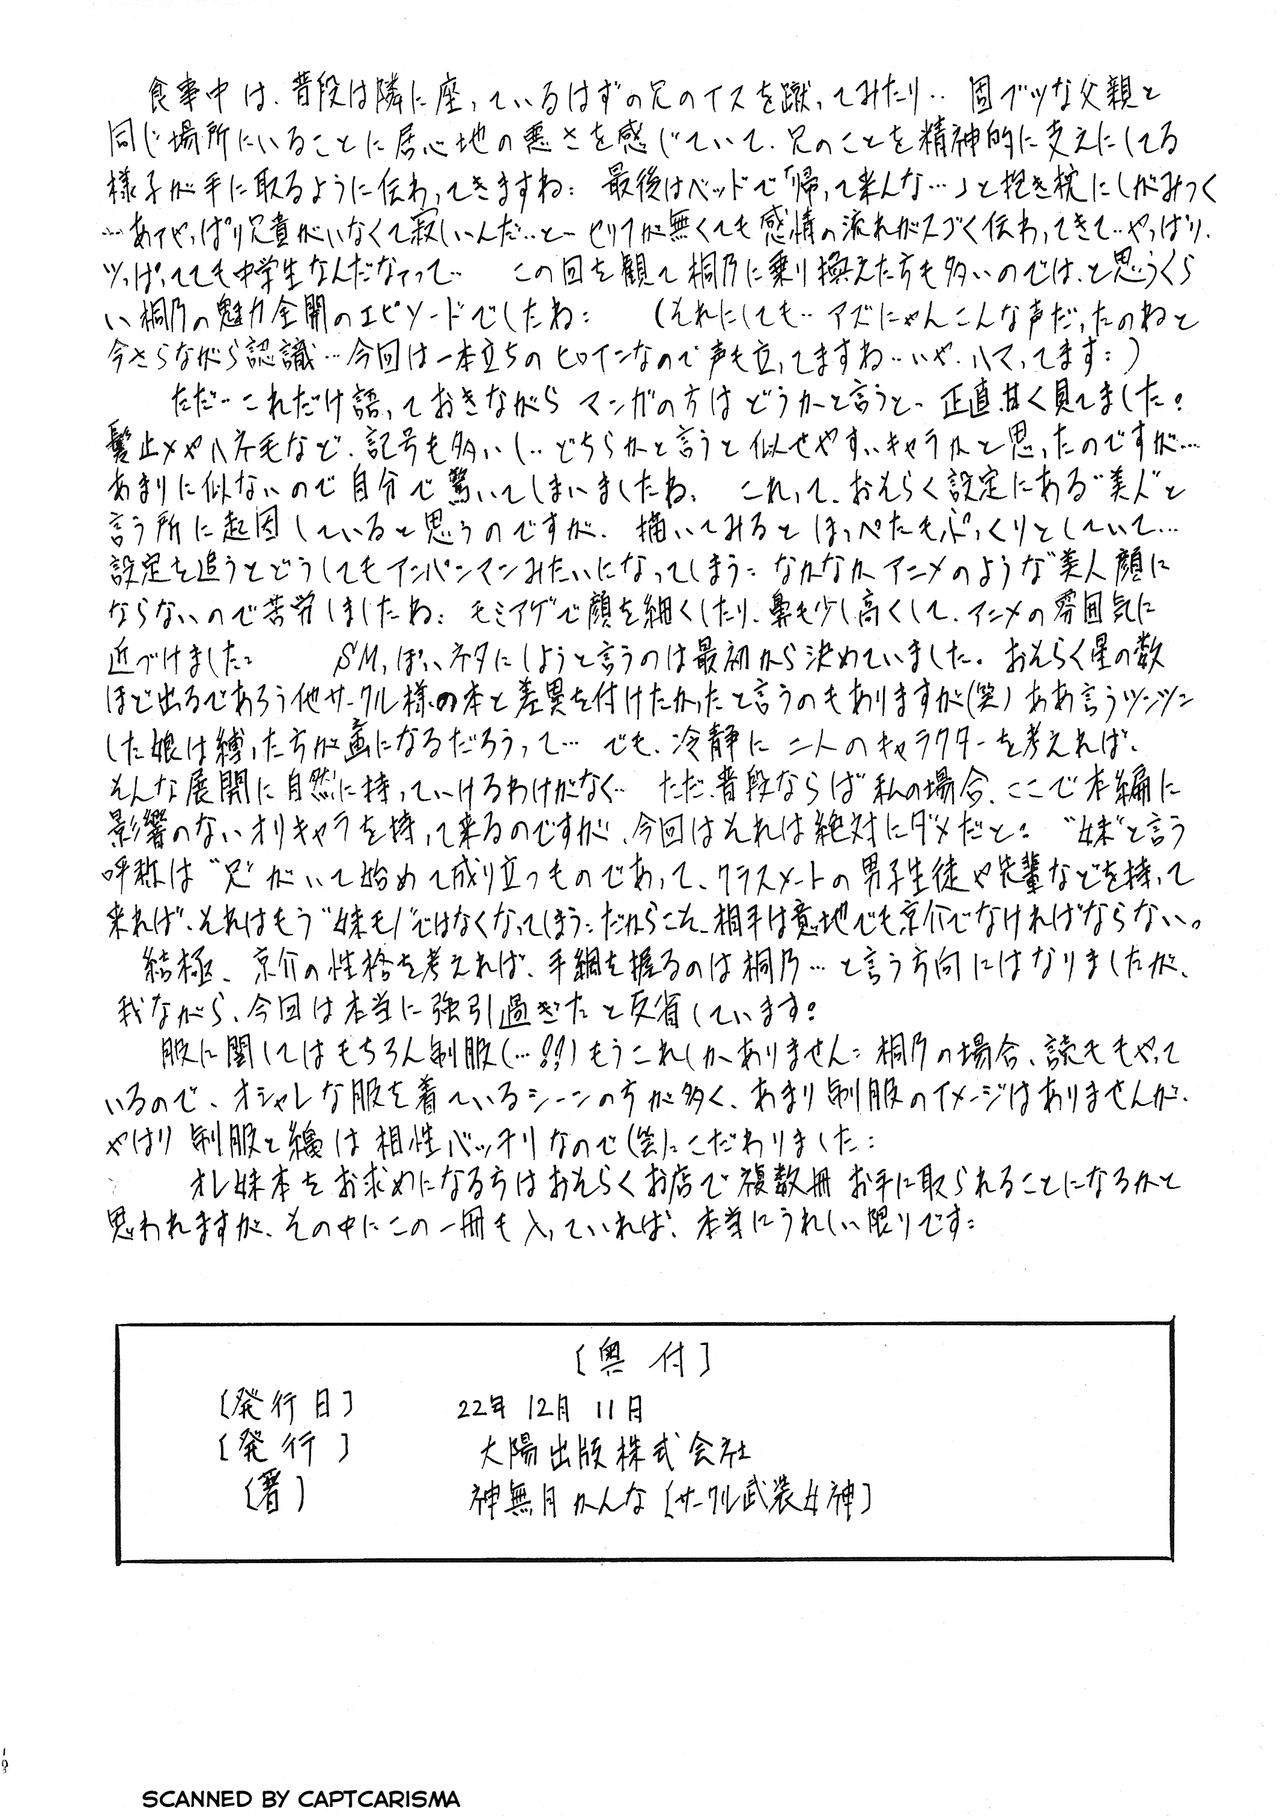 食事中は、普段は隣に座っているはずの兄のイスを蹴ってみたり‥ 固ブツな父親と
同じ場所にいることに居心地の悪さを感じていて、兄のことを精神的に支えにしてる
様子が手に取るように伝わってきますね: 最後はベッドで「帰って来んな…」と抱き枕にしがみつく
…あァやっぱり兄貴がいなくて寂しいんだ‥とー セリフが無くても感情の流れがスゴく伝わってきて‥やっぱり、
ツっぱってても中学生なんだなァって‥ この回を観て桐乃に乗り換えた方も多いのでは、と思うくら
い桐乃の魅力全開のエピソードでしたね: (それにしても‥アズにゃんこんな声だったのねと
今さらながら認識…今回は一本立ちのヒロインなので声も立ってますね‥いや、ハマってます:)
ただ‥これだけ語っておきながらマンガの方はどうかと言うと、正直、甘く見てました。
髪止メやハネ毛など、記号も多いし‥どちらかと言うと似せやすいキャラかと思ったのですが…
あまりに似ないので自分で驚いてしまいましたね、 これって、おそらく設定にある"美人"と
言う所に起因していると思うのですが、描いてみるとほっぺたもぷっくりとしていて…
設定を追うとどうしてもアンパンマンみたいになってしまう: なかなかアニメのような"美人顔に
ならないので苦労しましたね: モミアゲで顔を細くしたり、鼻も少し高くして、アニメの雰囲気に
近づけました: SMっぽいネタにしようと言うのは最初から決めていました。おそらく星の数
ほど出るであろう他サークル様の本と差異を付けたかったと言うのもありますが(笑)ああ言うツンツン
した娘は縛った方が画になるだろうって… でも、冷静に二人のキャラクターを考えれば、
そんな展開に自然に持っていけるわけがなく‥ ただ、普段ならば私の場合、ここで本編に
影響のないオリキャラを持って来るのですが、今回はそれは絶対にダメだと: "妹"と言う
呼称は"兄"がいて始めて成り立つものであって、クラスメートの男子生徒や先輩などを持って
来れば、それはもう"妹モノ"ではなくなってしまう:だからこそ、相手は意地でも京介でなければならない。
結極、京介の性格を考えれば、手綱を握るのは桐乃…と言う方向にはなりましたが、
我ながら、今回は本当に強引過ぎたと反省しています:
服に関してはもちろん制服(…!!)もうこれしかありません: 桐乃の場合、読モもやって
いるので、オシャレな服を着ているシーンの方が多く、あまり制服のイメージはありませんが、
やはり制服と縄は相性バッチリなので(笑)こだわりました:
オレ妹本をお求めになる方はおそらくお店で複数冊お手に取られることになるかと
思われますが、その中にこの一冊も入っていれば、本当にうれしい限りです:
[奥付]
[発行日] 22年12月11日
[発行] 大陽出版株式会社
[著] 神無月かんな[サークル武装女神]
SCANNED BY CAPTCARISMA